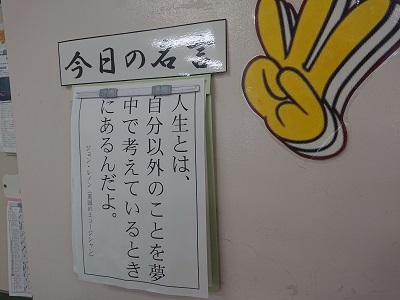 今日の名言
人生とは、
自分以外のことを夢
中で考えているとき
にあるんだよ。
ジョン・レノン（英国のミュージシャン）